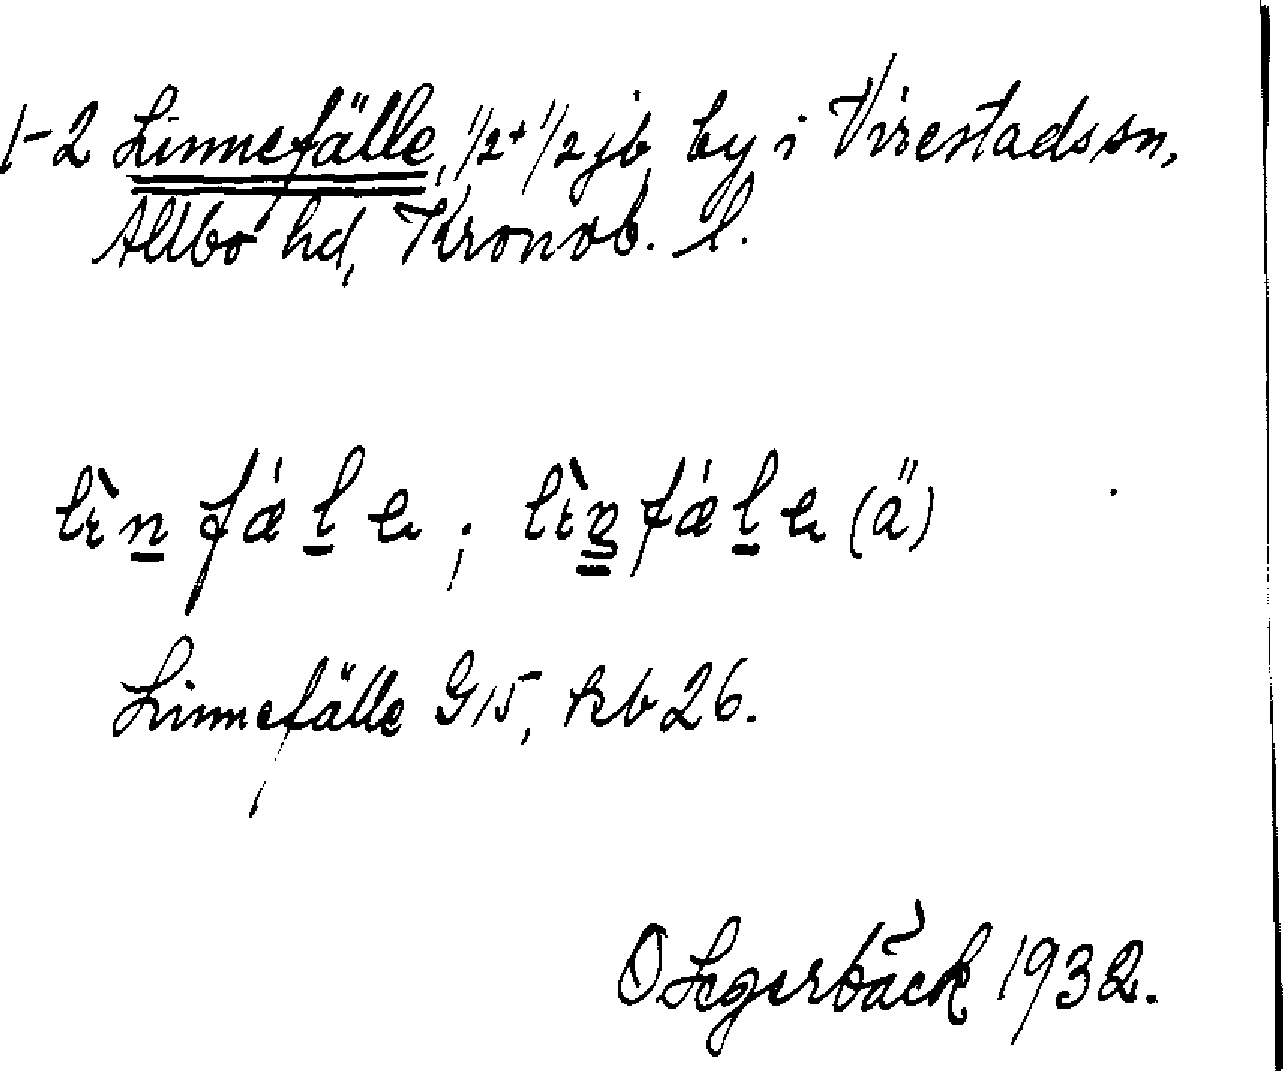 1-2 Linnefälle, 1/2+1/2 jb by i Virestads sn,
Allbo hd, Kronob. l.
lìn fǽle ; lìn fǽle (ä)
Linnefälle G15, kb 26.
O Segerbäck 1932.